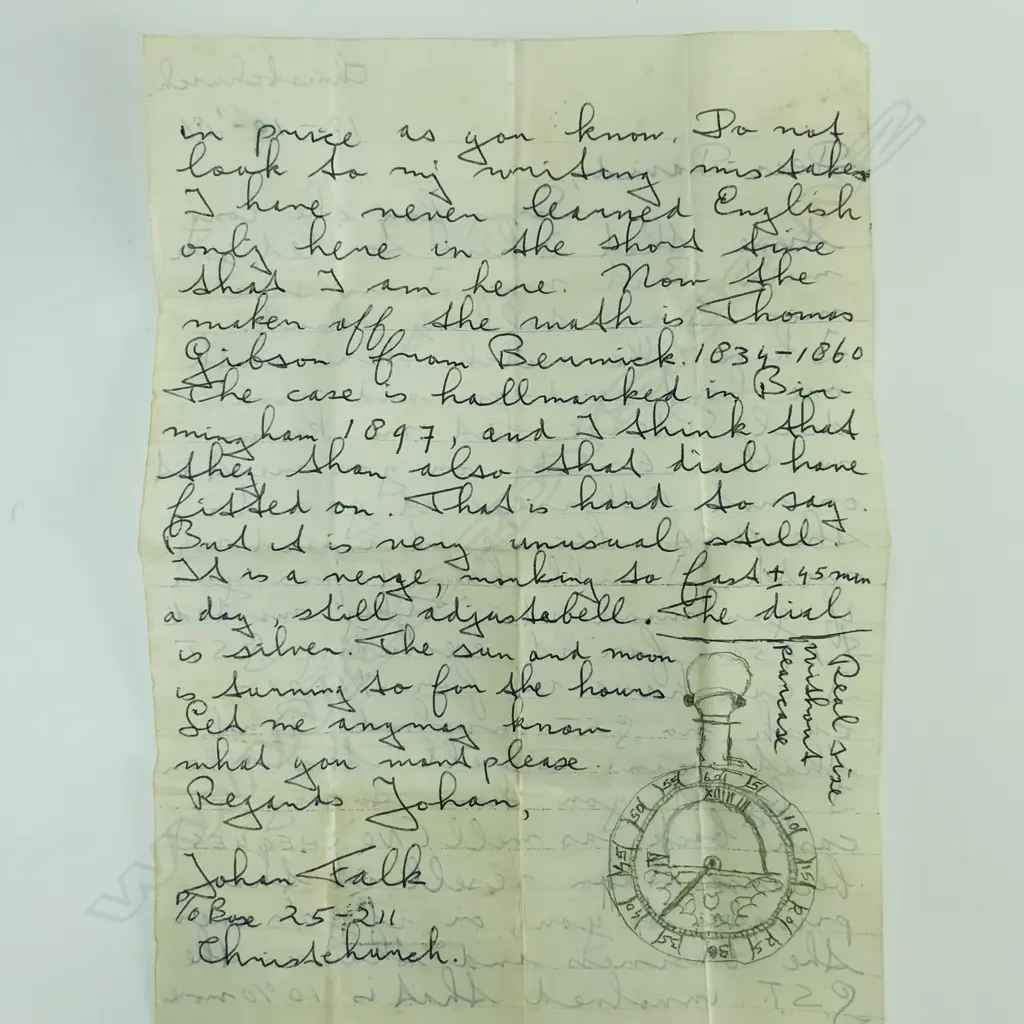 in price as you know. Do not
look to my writing mistakes
I have never learned English
only here in the short time
that I am here. Now the
maker off the math is Thomas
Gibson from Berwick. 1834-1860
The case is hallmarked in Bir-
mingham 1897, and I think that
they than also that dial have
fitted on. That is hard to say.
But it is very unusual still.
It is a verge, working to fast ± 45 min
a day, still adjustabell. The dial
is silver. The sun and moon
is turning to for the hours
Let me anyway know
what you want please.
Regards Johan,
Johan Falk
P/O Box 25-211
Christchurch.
Real size
without
pearcase
55 60 5
50 10
45 15
40 20
35 30 25